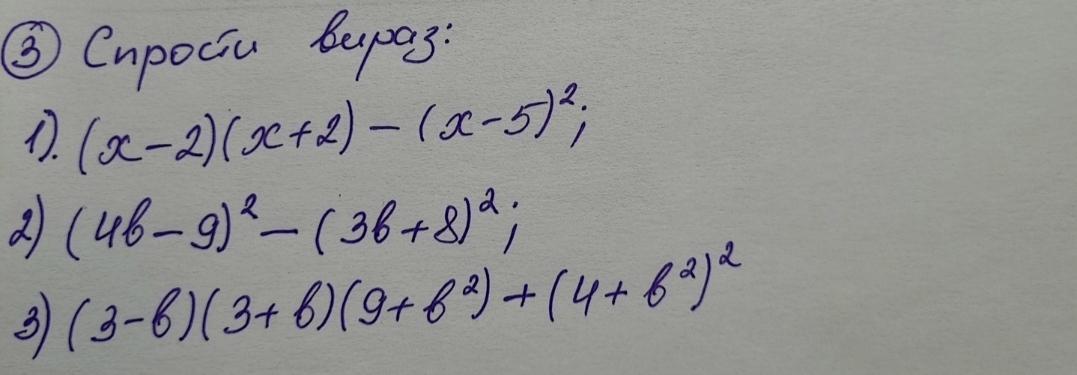 ③ Спрости вираз:
1). (x-2)(x+2) - (x-5)²;
2) (4b-9)² - (3b+8)²;
3) (3-b)(3+b)(9+b²)+(4+b²)²